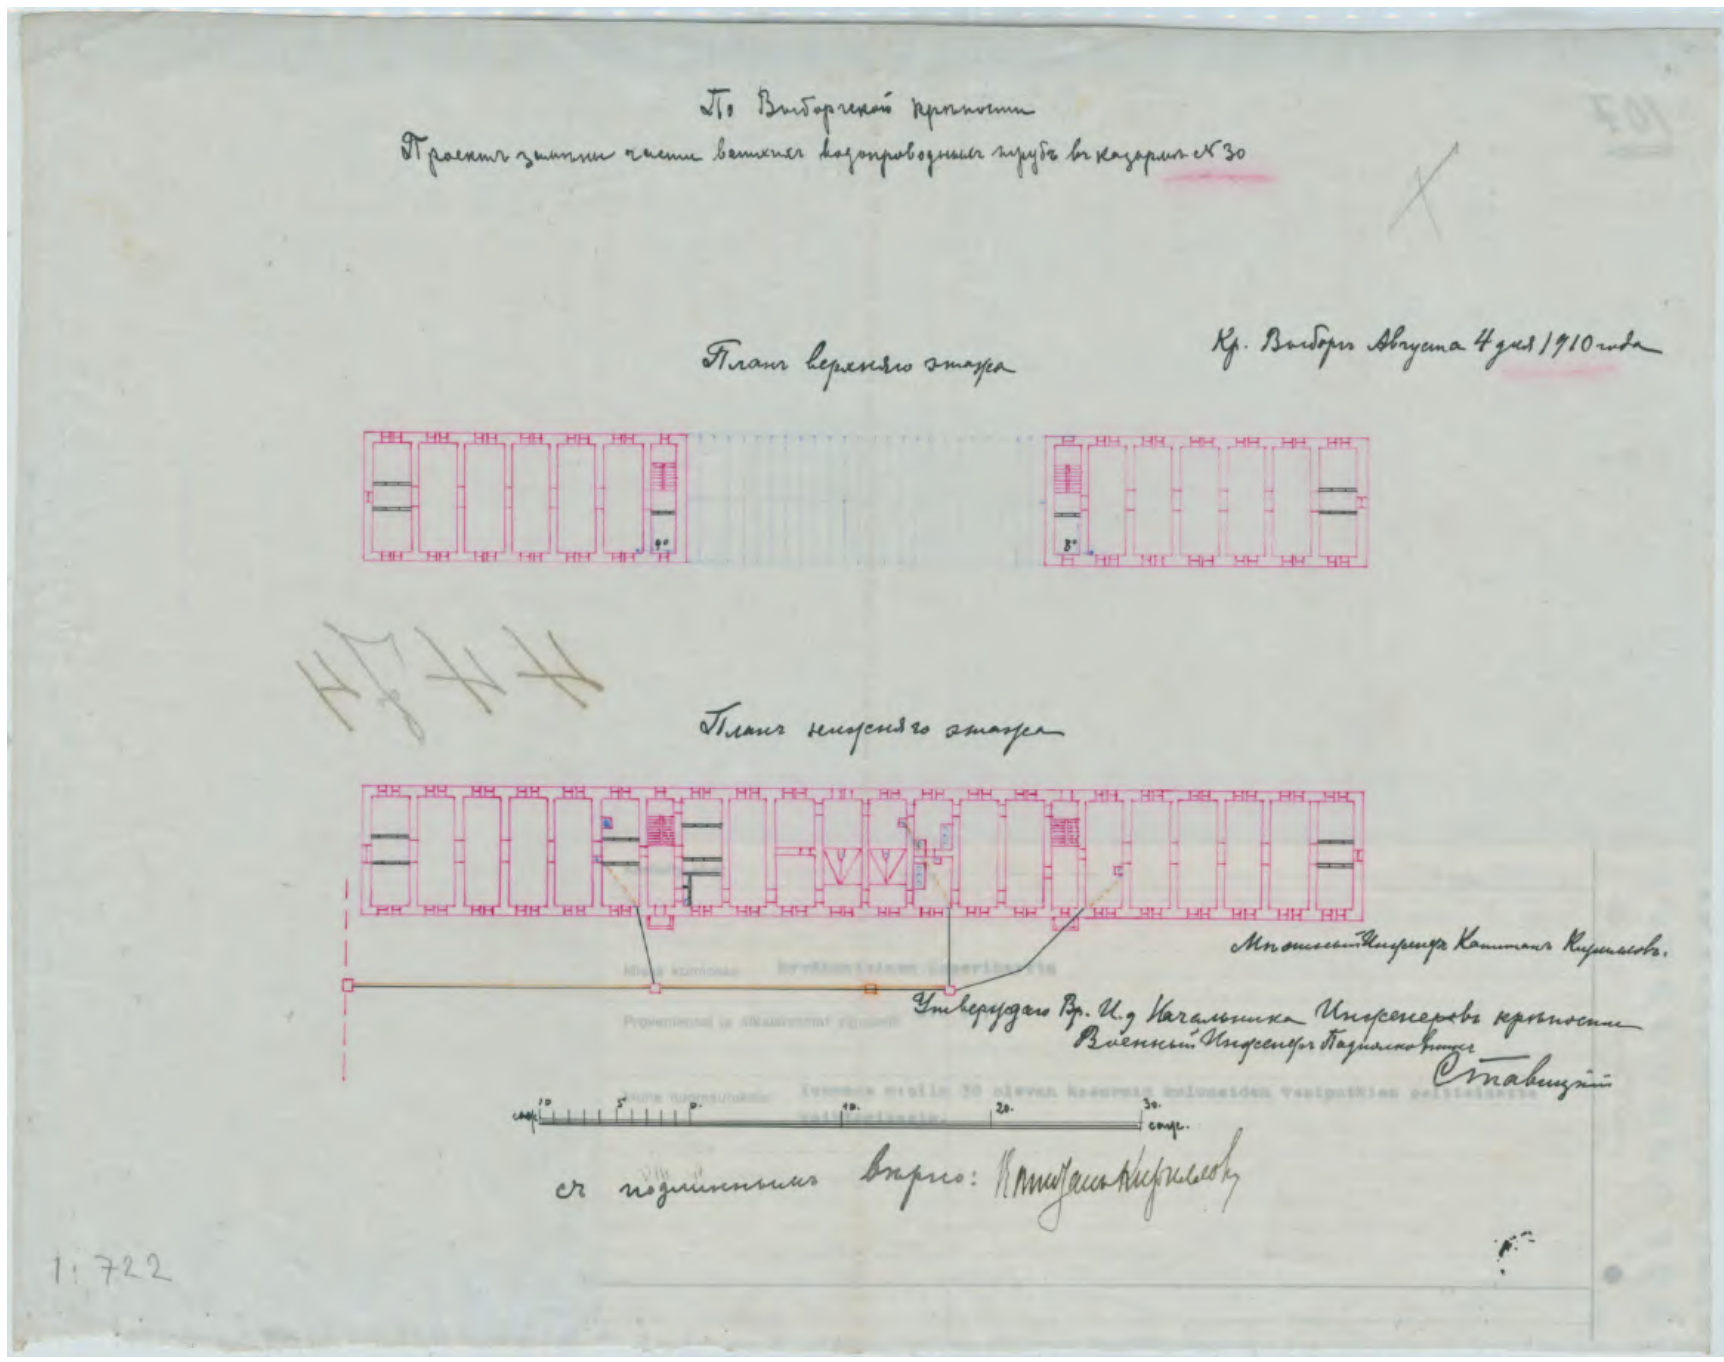 По Выборгской крѣпости
Проектъ замѣны части ветхихъ водопроводныхъ трубъ въ казармѣ №30
107
Кр. Выборгъ Августа 4 дня 1910 года
Планъ верхняго этажа
4744
Планъ нижняго этажа
Инженеръ Капитанъ Кирилловъ.
Утверждаю Вр. И. д Начальника Инженеровъ крѣпости
Военный Инженеръ Подполковникъ
Ставицкій
саж. 10 5 0. 10. 20. 30. саж.
съ подлиннымъ вѣрно: Капитанъ Кирилловъ
1:722